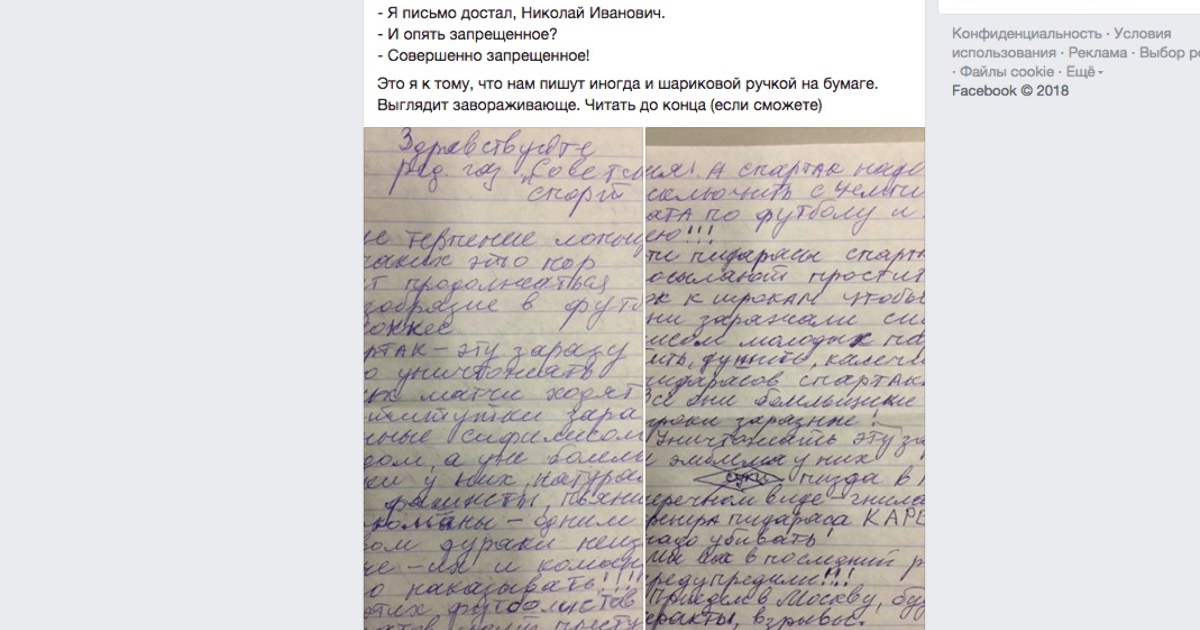 - Я письмо достал, Николай Иванович.
- И опять запрещенное?
- Совершенно запрещенное!
Это я к тому, что нам пишут иногда и шариковой ручкой на бумаге.
Выглядит завораживающе. Читать до конца (если сможете)
Конфиденциальность · Условия
использования · Реклама · Выбор
· Файлы cookie · Ещё
Facebook © 2018
Здравствуйте
ред. газ "Советск
спорт
терпение лопну
каких это пор
т продолжаться
зобразие в футб
оккее
ртак - эту заразу
о уничтожать
их матчи ходят
ститутки зара
ные сифилисом
дом, а уже болел
у них натурал
фашисты, пьяни
команы - одним
вом дураки неиз
и коман
о наказывать!!!!
этих футболистов
ия! А спартак надо
сключить с чемпи
ата по футболу и
ею!!!
ти пидарасы спарт
осылают простит
ок к игрокам чтобы
ни заражали си
исом молодых
ить, душить, калечи
пидарасов спартак
Все они болельщики
гроки заразные!
Уничтожать эту за
эмблема у них
суки пизда в
перечном виде - гнила
енера пидараса КАРЕ
надо убивать!
Мы вас в последний р
редупредили!!!
Приедем в Москву, буд
ракты, взрывы.